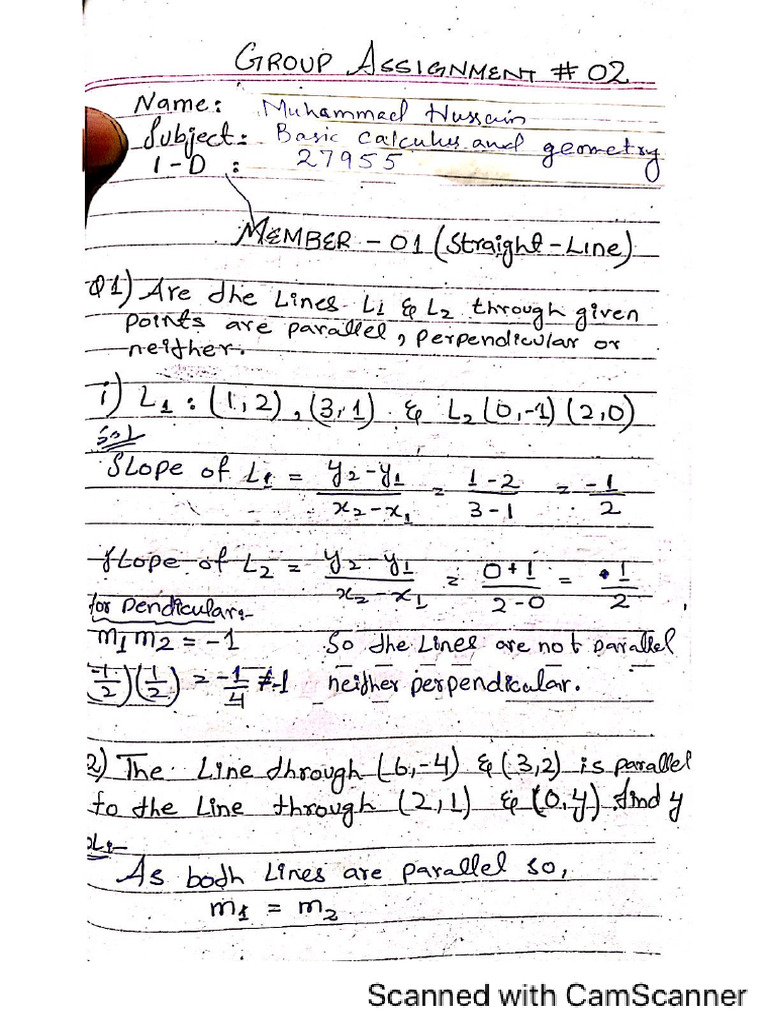 GROUP ASSIGNMENT # 02
Name: Muhammad Hussain
Subject: Basic calculus and geometry
I-D : 27955
MEMBER - 01 (Straight-Line)
Q1) Are the Lines L1 & L2 through given
points are parallel, perpendicular or
neither.
i) L1 : (1,2), (3,1) & L2 (0,-1) (2,0)
Sol
Slope of L1 = y2-y1/x2-x1 = 1-2/3-1 = -1/2
Slope of L2 = y2-y1/x2-x1 = 0+1/2-0 = 1/2
for pendicular:-
m1 m2 = -1 So the Lines are not parallel
(-1/2)(1/2) = -1/4 ≠ -1 neither perpendicular.
2) The Line through (-6,-4) & (3,2) is parallel
to the Line through (2,1) & (0,y) find y
As both Lines are parallel so,
m1 = m2
Scanned with CamScanner